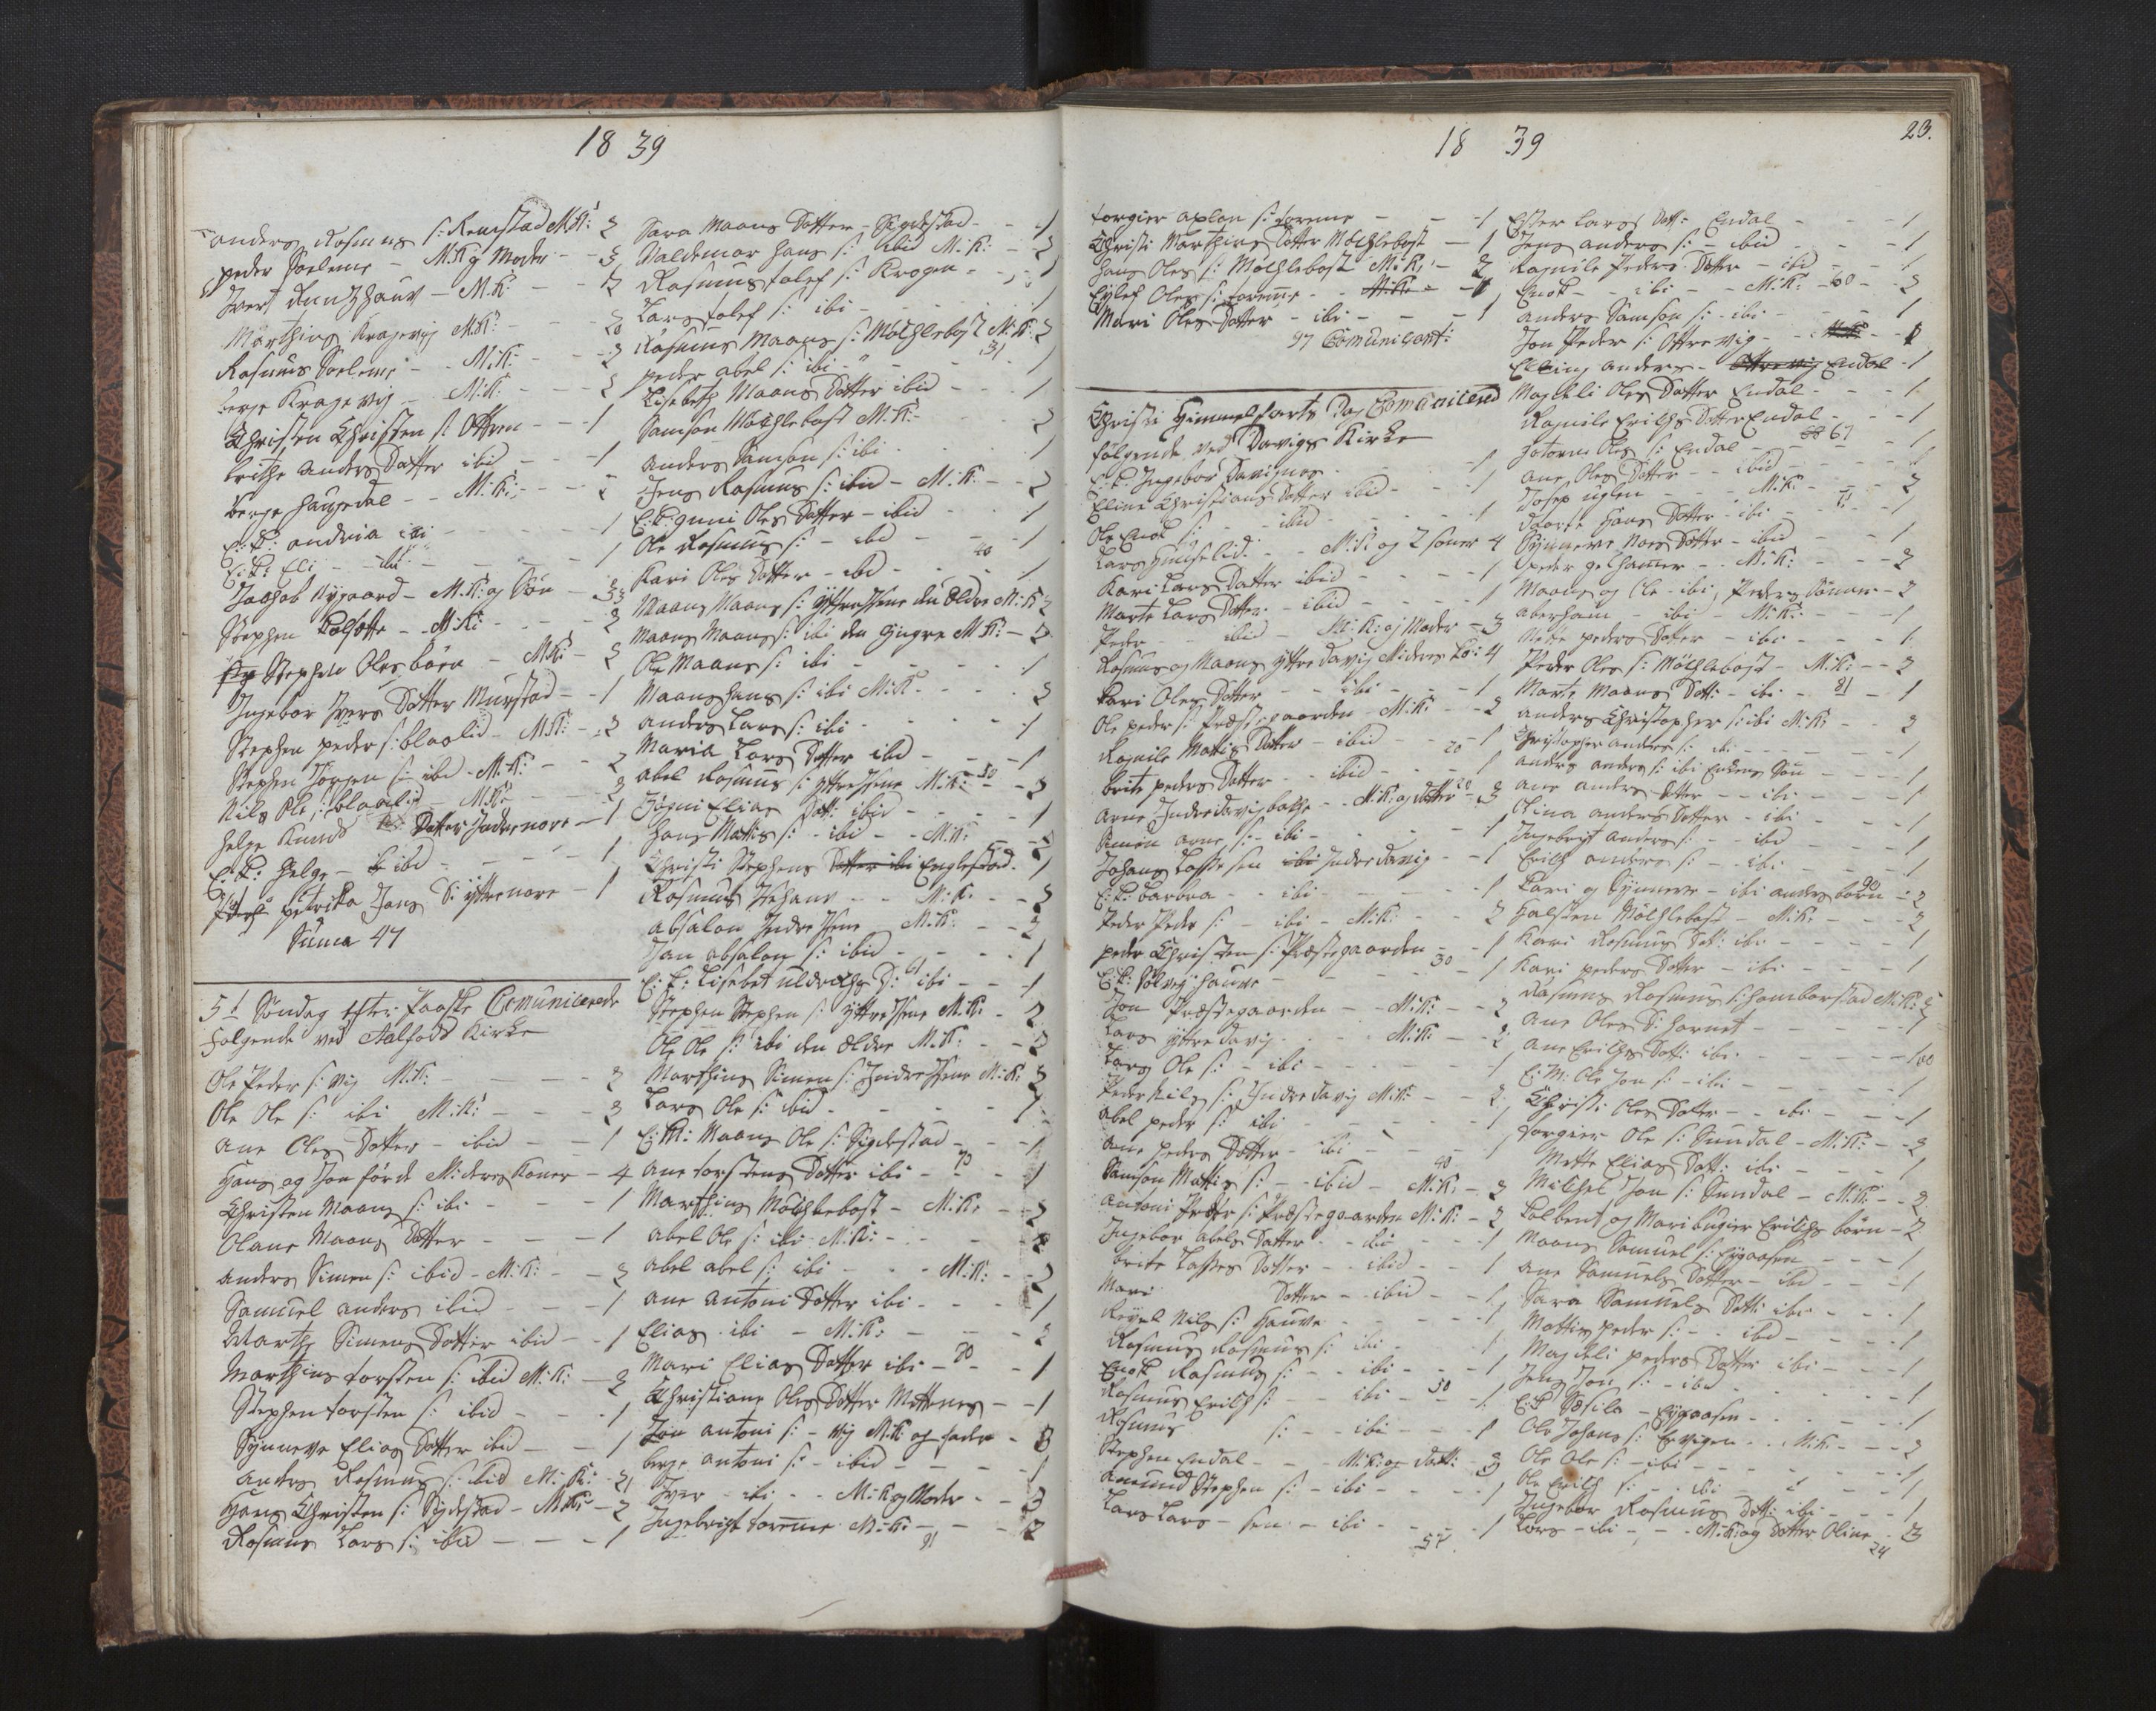 18 39
anders Rasmus s: Remstad M:K: 2
peder Sörleme - M:K og Moder - 3
Ivert Rundhhaug - M:K: 2
Marthins Kragevig M:K: - 2
Rasmus Sörleme - M:K: - 2
berge Kragevig - M:K: - 2
Christen Christen s: Ottrem - 1
brithe anders Datter ibid - 1
berge haugedal - M:K: - 2
E:K: andria ibi - 1
E:K: Eli - ibi - 1
Jacob Nygaard - M:K: og Sön - 3
Stephen - M:K: - 2
Stephen Oles börn - M:K: - 2
Ingebor Ivers Datter Murstad - 1
Stephen peder s: blaalid - M:K: - 2
Stephen Jörgen s: ibd - M:K: - 2
Nils Ole s: blaalid - M:K: - 2
helge Knuds Datter Indrenore - 1
E:K: helge - ibd - 1
petrika Jans D: yttrenore - 1
Suma 47
5t Söndag efter Paaske Comunicerede
Følgende ved Aalfods Kirke
Ole Peder s: vig M:K: - 2
Ole Ole s: ibi M:K: - 2
ane Oles Datter - ibid - 1
Hans og Jon förde Mideres Koner - 4
Christen Maons s: ibi - 1
Olane Maons Datter - 1
anders Simen s: ibid - M:K: - 2
Samuel anders ibid - 1
Marthe Simens Datter ibid - 1
Marthins torsten s: ibid M:K: - 2
Stephen torsten s: ibid - 1
Synneve Elias Datter ibid - 1
anders Rasmus s: ibid M:K: - 2
21
Hans Christen s: Sigdestad - M:K: - 2
Rasmus Lars s: ibid - 1
Sara Maons Datter - Sigdestad - 1
Valdemar Hans s: ibid M:K: - 2
Rasmus tolef s: Krogen - 1
Lars tolef s: ibi - 1
Rasmus Maons s: Möchlebost M:K: 2
31
peder abel s: ibi - 1
Lisebeth Maons Datter ibid - 1
Samson Möchlebost M:K: - 2
anders Samson s: ibi - 1
Jens Rasmus s: ibid - M:K: - 2
E:K: guni Oles Datter - ibid - 1
Ole Rasmus s: - ibd - 1
40
Kari Oles Datter - ibd - 1
Maons Maons s: yttrehsene den Eldre M:K: 2
Maons Maons s: ibi den yngre M:K: - 2
Ole Maons s: ibi - 1
Maons Hans s: ibi M:K: - 2
anders Lars s: ibi - 1
Maria Lars Datter ibd - 1
abel Rasmus s: yttrehsene M:K: - 50 - 2
Elias Dat: ibid - 1
Hans Mattis s: ibid - M:K: - 2
Christi Stephens Datter ibi Englestad - 1
Rasmus - M:K: - 2
absalon Indrehsene M:K: - 2
Jan absalon s: ibid - 1
61
E:K: Lisebet D: ibi - 1
Stephen Stephen s: yttrehsene M:K: - 2
Ole Ole s: ibi den Eldre M:K: - 2
Marthins Simen s: Indrehsene M:K: 2
Lars Ole s: ibid - 1
E:M: Maons Ole s: Sigdestad - 1
ane torstens Datter ibi - 70 - 1
Marthins Möchlebost - M:K: - 2
abel Ole s: ibi - M:K: - 2
abel abel s: ibi - M:K: - 2
ane antoni Datter ibi - 1
Elias - ibi - M:K: - 2
Mari Elias Datter ibi - 80 - 1
Christiane Oles Datter Mettenes - 1
Jon antoni s: - vig M:K: og fader - 3
berge antoni s: - ibid - 1
Iver - ibi - M:K og Moder - 3
Ingebrigt torenne M:K: - 2
91
18 39
23.
torgier aslon s: torenne - 1
Christi Marthins Datter Möchlebost - 1
Hans Oles s: Möchlebost M:K: - 2
Eylef Oles s: torenne - M:K: - 1
Mari Oles Datter - ibi - 1
97 Comunicant:
Christi Himmelfarts Dag Comunicered
følgende ved Davigs Kirke
E:K: Ingebor Davignes - 1
Eline Christians Datter ibid - 1
Ole Enok s: - ibid - 1
Lars Himselid - M:K: og 2 söner 4
Kari Lars Datter ibid - 1
Marte Lars Datter - ibid - 1
Peder - ibid - M:K: og Moder - 3
Rasmus og Maons yttredavig Mideres Ko: 4
Kari Oles Datter - ibi - 1
Ole peder s: Præstegaarden - M:K: - 2
Ragnile Mattis Datter - ibid - 20 - 1
brite peders Datter - ibid - 1
arne Indredavigbakke - M:K: og datter - 3
Simen arne s: - ibi - 1
Johans Lasse sen ibi Indredavig - 1
E:K: barbra - ibi - 1
Peder Peder s: - ibi - M:K: - 2
peder Christen s: Præstegaarden - 1
30
E:K: Sölvig Hauve - 1
Jon Præstegaarden - M:K: - 2
Lars yttredavig - M:K: - 2
Lars Ole s: - ibi - 1
Peder Nils s: Indredavig M:K: - 2
abel peder s: ibi - 1
ane peders Datter - ibi - 1
40
Samson Mattis s: - ibid - M:K: - 2
antoni Peder s: Præstegaarden M:K: - 2
Ingebor abels Datter - ibi - 1
brite Lasses Datter - ibid - 1
Mari Datter - ibid - 1
Nils s: Hauve - 1
Rasmus Rasmus s: ibi - 1
Enok Rasmus s: - ibi - 1
Rasmus Erichs s: - ibi - 50 - 1
Rasmus s: - ibi - 1
Stephen Endal - M:K: og Datt: - 3
amund Stephen s: - ibi - 1
Lars Lars - sen - ibi - 1
57
Ester Lars Dat: Endal - 1
Jens anders s: - ibid - 1
Ragnile Peders Datter - ibid - 1
Enok - ibi - M:K: - 60 - 2
anders Samson s: - ibi - 1
Jon Peder s: Ottrevig - M:K: - 1
Elling anders - Ottrevig Endal - 1
Magteli Oles Datter Endal - 1
Ragnile Erichs Datter Endal - 1
67
Oles s: Endal - 1
ane Oles Datter - ibid - 1
Josep uglen - M:K: - 2
dorte Hans Datter - ibi - 71 - 1
Synneve Datter - ibid - 1
peder - M:K: - 2
Maons og Ole - ibi, Peders Sönner - 2
aberham - ibi - M:K: - 1
peders Dater - ibi - 1
Peder Oles s: Möchlebost - M:K: - 2
Marte Maons Datt: - ibi - 81 - 1
anders Christopher s: ibi M:K: - 2
Christopher anders s: ibi - 1
anders anders s: ibi Enkens Sön - 1
ane anders Datter - ibi - 1
Olina anders Datter - ibi - 1
Ingebrigt anders s: - ibd - 1
Erich anders s: - ibi - 1
Kari og Synneve - ibi anders börn - 90 - 2
Halsten Möchlebost - M:K: - 2
Kari Rasmus Dat: ibi - 1
Kari peders Datter - ibi - 1
Rasmus Rasmus s: Hamborstad M:K: 2
ane Oles D: Hornet - 1
ane Erichs Datt: ibi - 1
100
E:M: Ole Jon s: - ibi - 1
Christi Oles Datter - ibi - 1
torgier Ole s: Sundal - M:K: - 2
Mette Elias Datt: ibi - 1
Milchel Jon s: Sundal - M:K: - 2
og Mari Erichs börn - 2
Maons Samuel s: Eygaasen - 1
ane Samuels Datter - ibd - 1
Sara Samuels Datt: ibi - 1
Mattis peder s: - ibd - 1
Magteli peders Datter ibi - 1
Jens Jon s: - ibd - 1
E:K Sösila - Eygaasen - 1
Ole Johans s: Ervigen - M:K: - 2
Ole Ole s: - ibi - 1
Ole Erich s: - ibi - 1
Ingebor Rasmus Datt: ibi - 1
Lars - ibi - M:K: og Datter Oline - 3
24